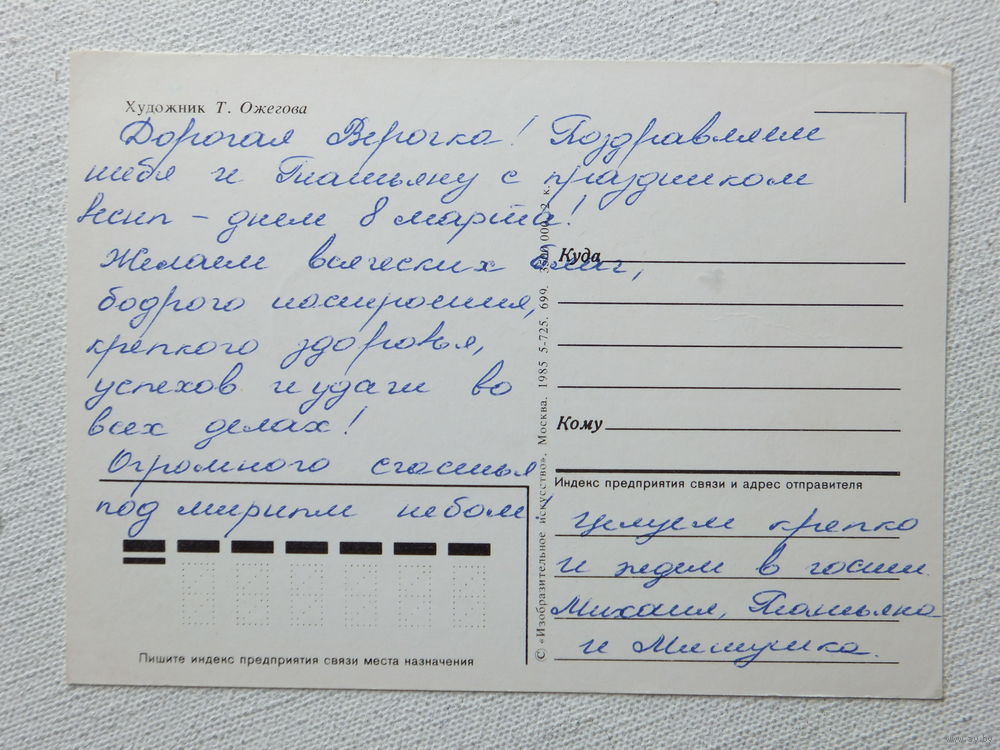 Художник Т. Ожегова
Дорогая Верочка! Поздравляем
тебя и Татьяну с праздником
весны – днем 8 марта!
Желаем всяческих благ,
бодрого настроения,
крепкого здоровья,
успехов и удачи во
всех делах!
Огромного счастья
под мирным небом!
Пишите индекс предприятия связи места назначения
© «Изобразительное искусство». Москва. 1985 5-725. 699. 2 к.
Куда
Кому
Индекс предприятия связи и адрес отправителя
Целуем крепко
и ждем в гости.
Михаил, Татьяна
и
www.ay.by